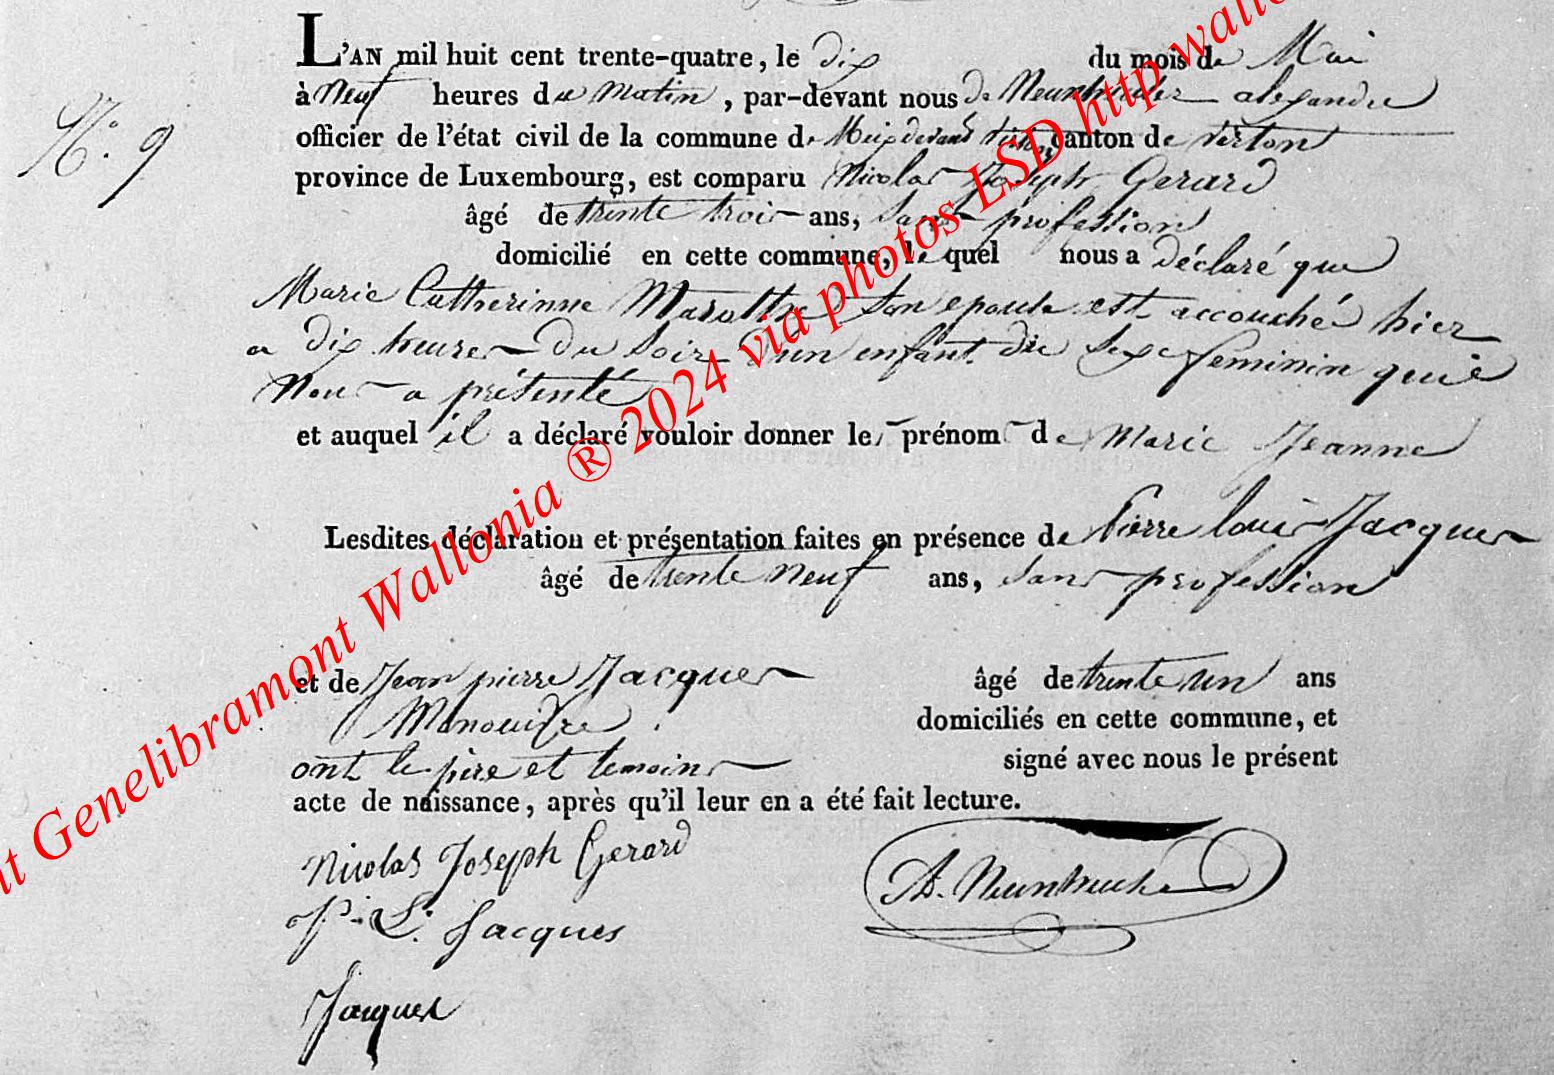 L'AN mil huit cent trente-quatre, le dix du mois de Mai
à Neuf heures du Matin, par-devant nous De Neunheuser alexandre
officier de l'état civil de la commune de Meix devant virton, canton de virton
province de Luxembourg, est comparu Nicolas Joseph Gerard
âgé de trente trois ans, Sans profession
domicilié en cette commune, le quel nous a déclaré que
Marie Catherinne Marotte Son epouse est accouchée hier
a dix heures Du Soir D'un enfant du Sexe feminin qu'il
Nous a présenté
et auquel il a déclaré vouloir donner les prénoms de Marie Jeanne
Lesdites déclaration et présentation faites en présence de Pierre louis Jacques
âgé de trente Neuf ans, Sans profession
et de Jean pierre Jacques âgé de trente un ans
Manouvre domiciliés en cette commune, et
ont le père et temoins signé avec nous le présent
acte de naissance, après qu'il leur en a été fait lecture.
Nicolas Joseph Gerard
P. L. Jacques
Jacques
N.° 9
Genelibramont Wallonia ® 2024 via photos LSD http